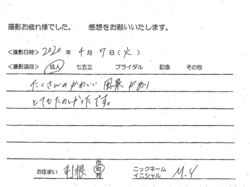 撮影お疲れ様でした。 感想をお願いいたします。
<撮影日時> 2020 年 4 月 7 日 (火)
<撮影項目> 成人 七五三 ブライダル 記念 その他
たくさんのかわいい 風景があり
とてもたのしそうです。
お住まい 利根 市 町 村 ニックネーム イニシャル M.Y